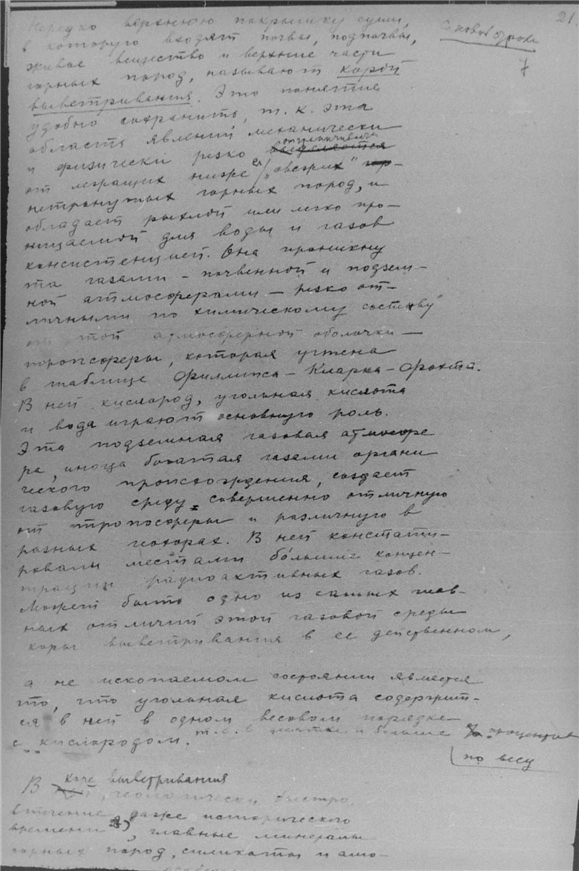 21
С новой строки
7
Нередко верхнюю покрышку суши,
в которую входят почвы, подпочвы,
живое вещество и верхние части
горных пород, называют корой
выветривания. Это понятие
удобно сохранить, т.к. эта
область явлений механически
и физически резко отграничивается
от лежащих ниже её нетронутых горных пород, и
обладает рыхлой или легко про-
ницаемой для воды и газов
консистенцией. Она проникну
та газами - почвенной и подзем-
ной атмосферами - резко от-
личными по химическому составу
от той атмосферной оболочки -
тропосферы, которая учтена
в таблице Филлипса - Кларка - Фохта.
В ней кислород, угольная кислота
и вода играют основную роль.
Эта подземная газовая атмосфе
ра, иногда богатая газами органи
ческого происхождения, создает
газовую среду совершенно отличную
от тропосферы и различную в
разных геохорах. В ней констати-
рованы местами большие концен-
трации радиоактивных газов.
Может быть одно из самых глав-
ных отличий этой газовой среды
коры выветривания в ее действенном,
а не ископаемом состоянии является
то, что угольная кислота содержит-
ся в ней в одном весовом порядке
с кислородом. т.е. в десятки и больше процентов
по весу
В коре выветривания
геологически быстро
в течение даже исторического
времени, главные минералы
горных пород, силикаты и алю-